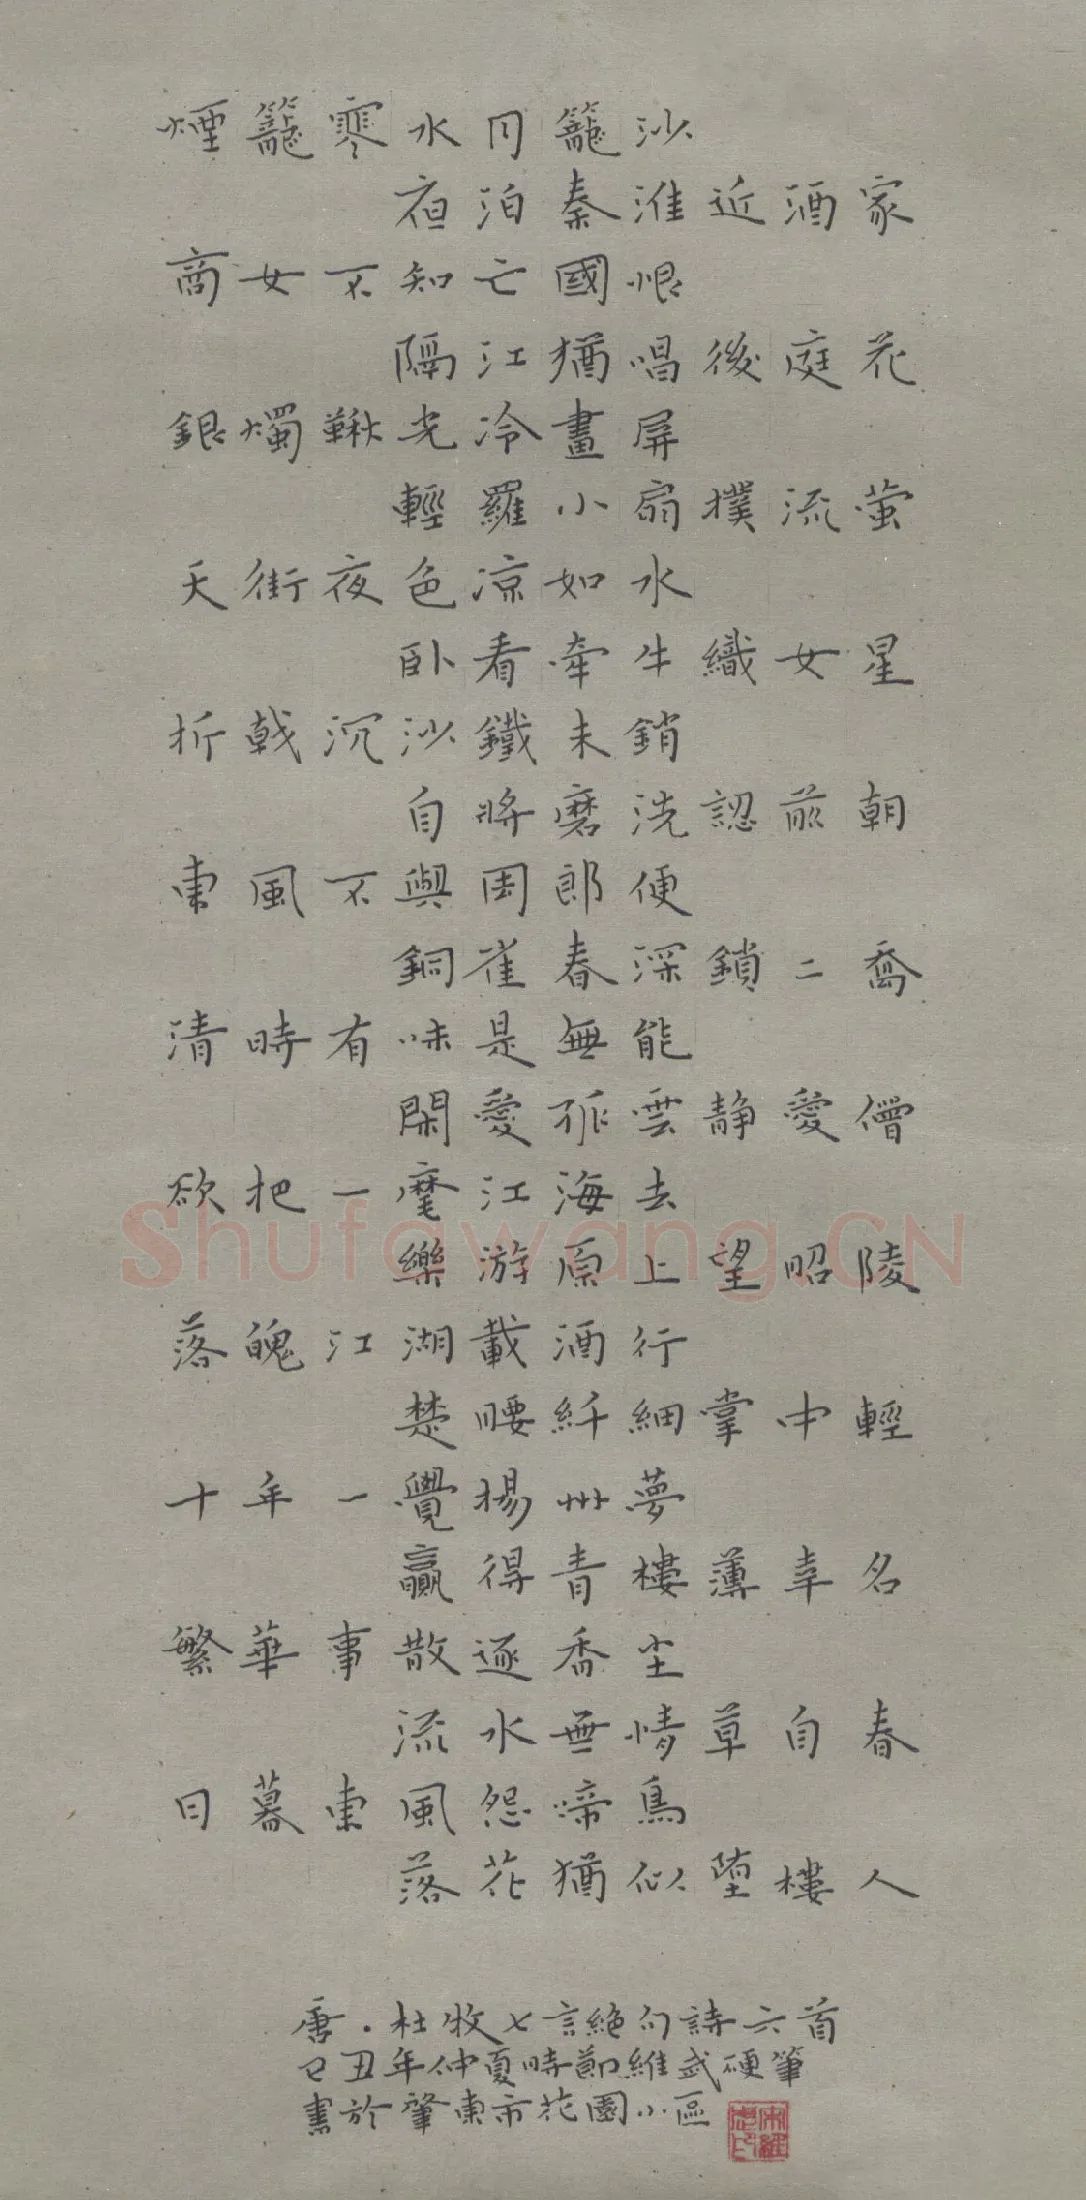 煙籠寒水月籠沙
夜泊秦淮近酒家
商女不知亡國恨
隔江猶唱後庭花
銀燭鞦光冷畫屏
輕羅小扇撲流萤
天街夜色凉如水
卧看牽牛織女星
折戟沉沙鐵未銷
自將磨洗認前朝
東風不與周郎便
銅雀春深鎖二喬
清時有味是無能
閑愛孤雲静愛僧
欲把一麾江海去
Shufawang.CN
樂游原上望昭陵
落魄江湖載酒行
楚腰纤細掌中輕
十年一覺揚州夢
贏得青樓薄幸名
繁華事散逐香尘
流水無情草自春
日暮東風怨啼鳥
落花猶似墮樓人
唐·杜牧七言絕句詩六首
己丑年仲夏時節維武硬筆
書於肇東市花園小區